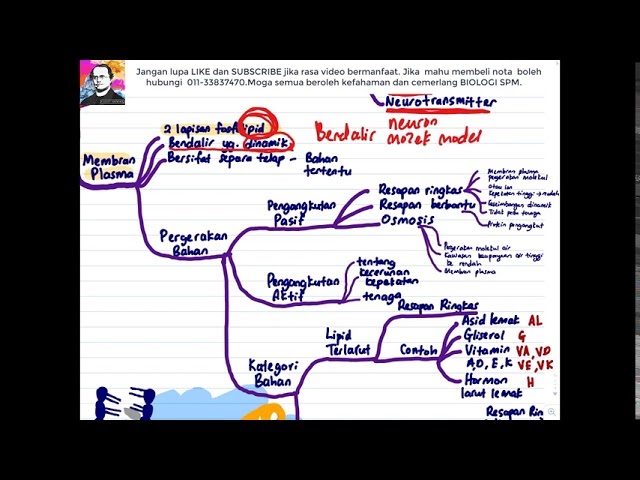 Jangan lupa LIKE dan SUBSCRIBE jika rasa video bermanfaat. Jika mahu membeli nota boleh
hubungi 011-33837470.Moga semua beroleh kefahaman dan cemerlang BIOLOGI SPM.
Neurotransmitter
2 lapisan fosfolipid
Bendalir yg. dinamik
Bersifat separa telap - Bahan
tertentu
Bendalir neuron
mozek model
Membran
Plasma
Pergerakan
Bahan
Pengangkutan
Pasif
Resapan ringkas
Resapan berbantu
Osmosis
Membran plasma
pergerakan molekul
atau ion
Kepekatan tinggi → rendah
Keseimbangan dinamik
Tidak perlu tenaga
Protein pengangkut
Pergerakan molekul air
Kawasan keupayaan air tinggi
ke rendah
Membran plasma
Pengangkutan
Aktif
tentang
kecerunan
kepekatan
tenaga
Kategori
Bahan
Lipid
Terlarut
Resapan Ringkas
Contoh
Asid lemak AL
Gliserol G
Vitamin VA, VD
A,D, E, K VE, VK
Hormon H
larut lemak
Resapan Rin